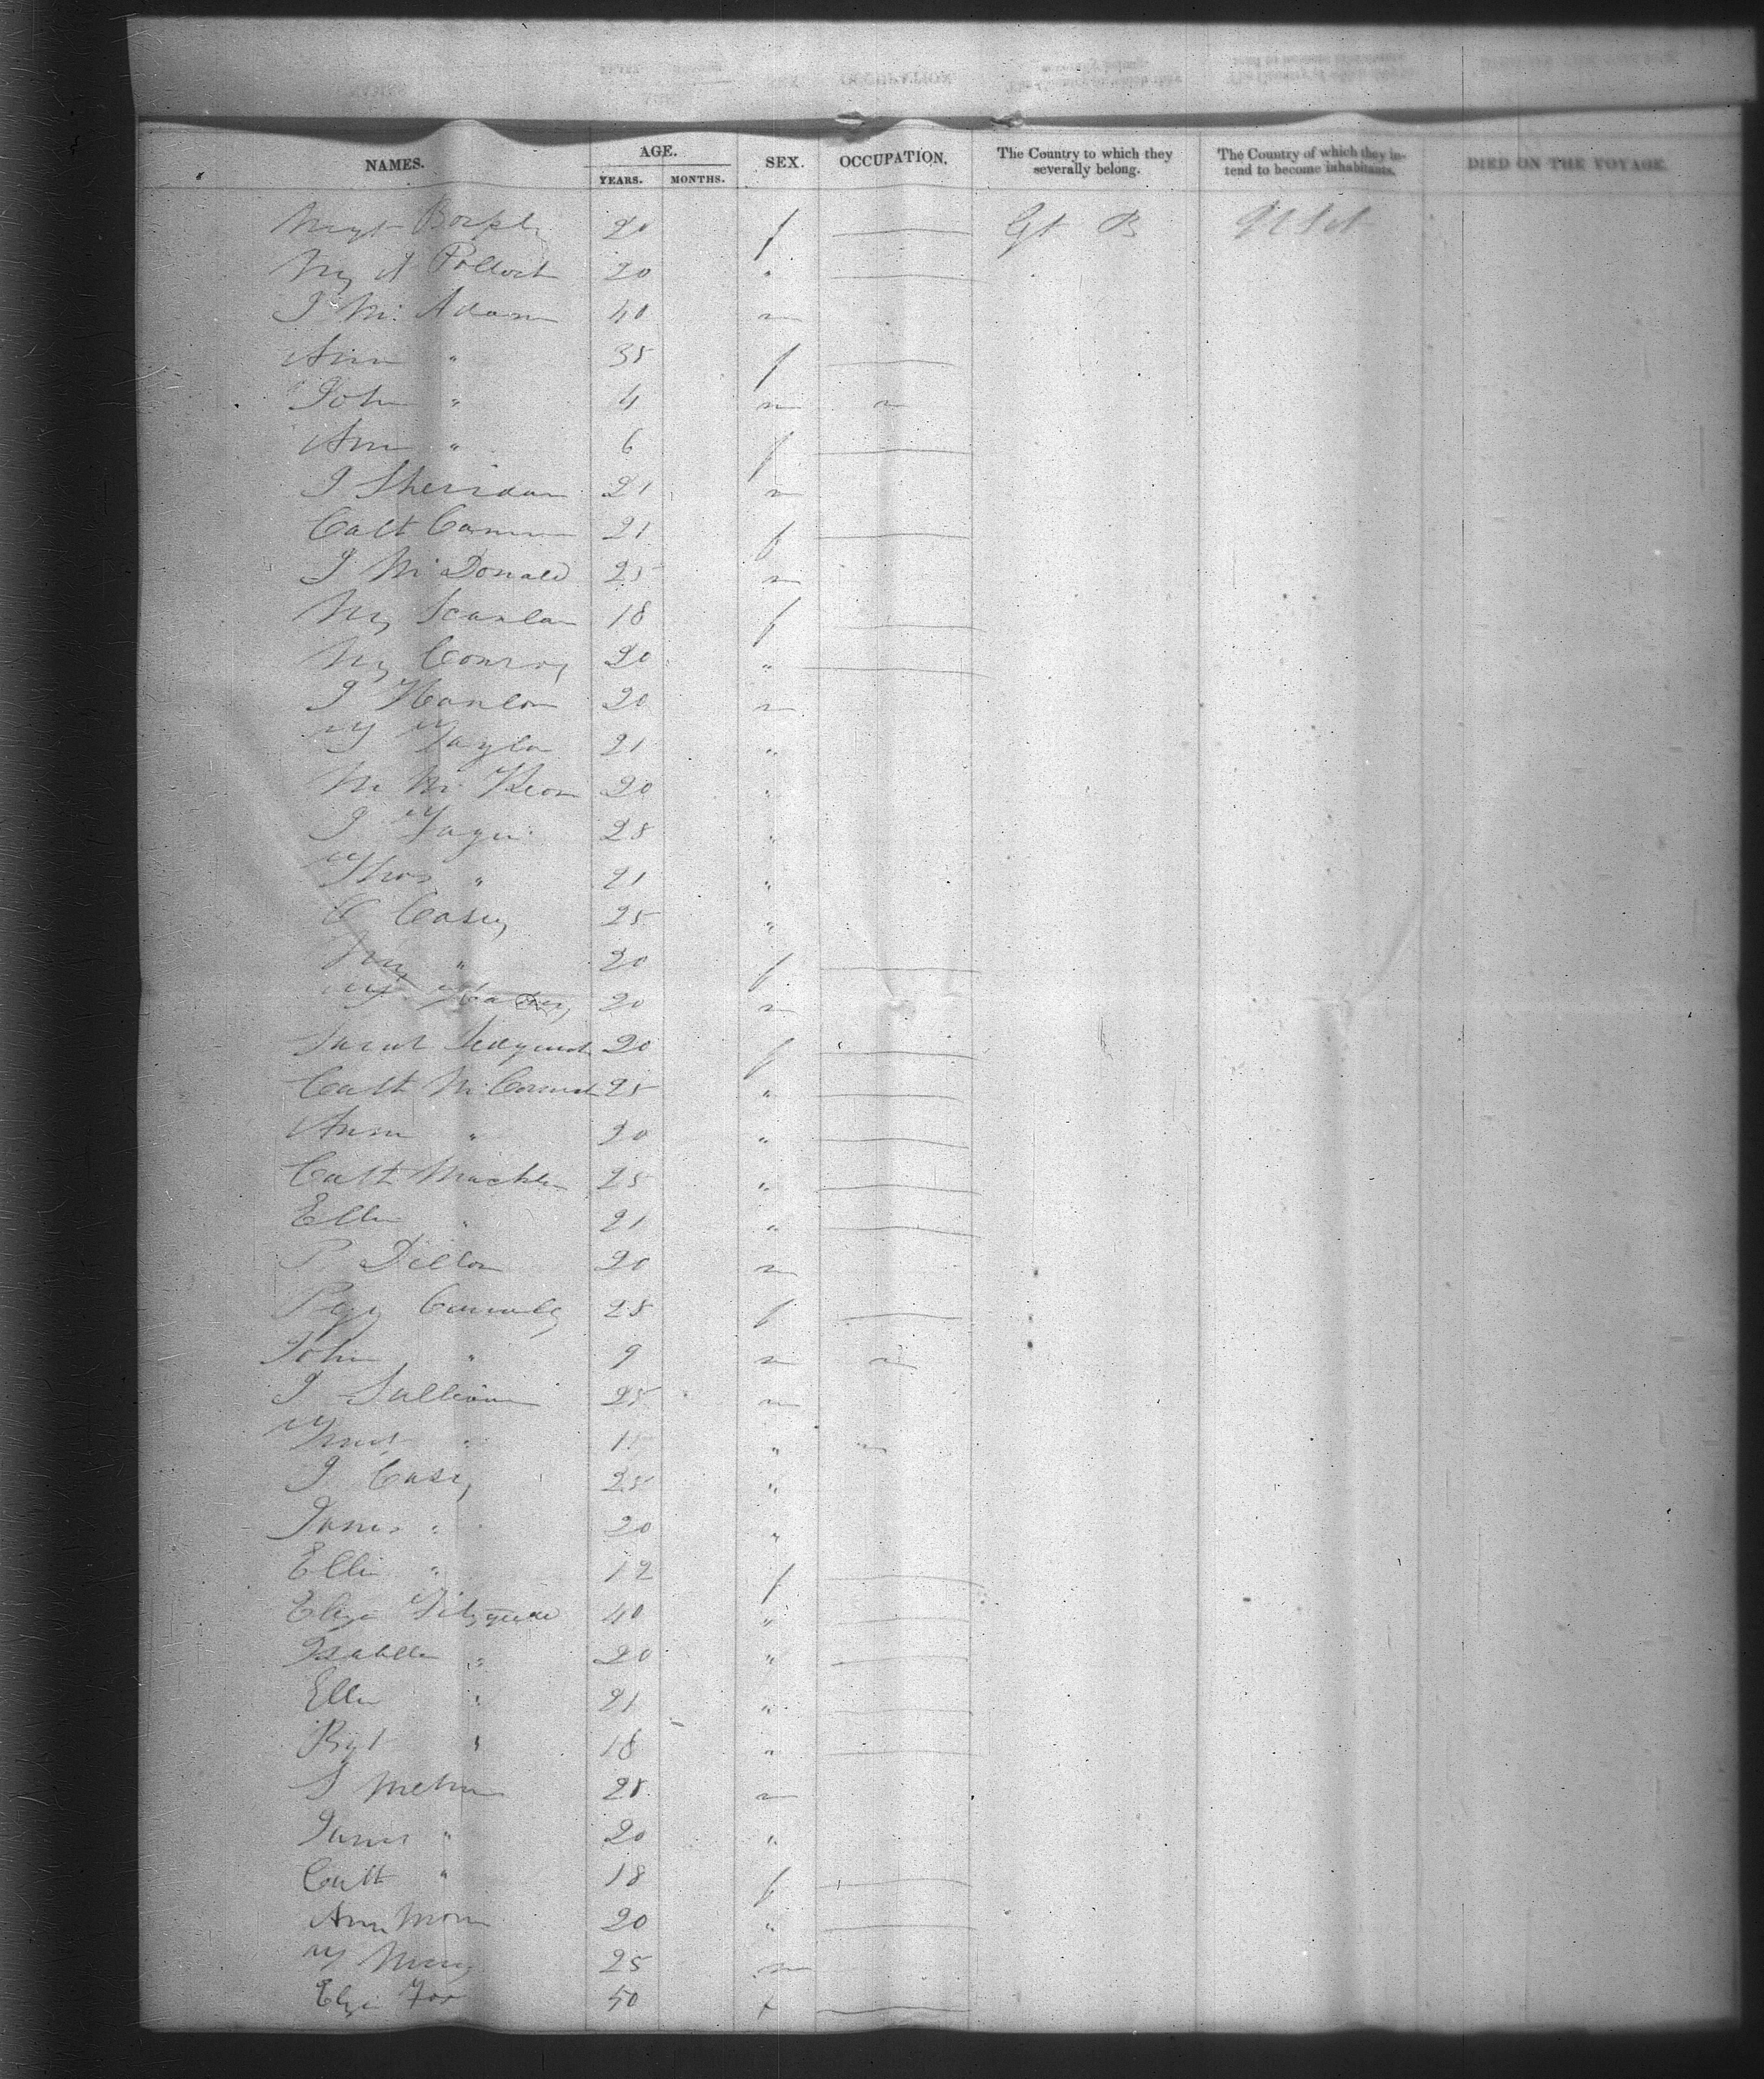 NAMES. AGE. YEARS. MONTHS. SEX. OCCUPATION. The Country to which they severally belong. The Country of which they intend to become inhabitants. DIED ON THE VOYAGE.
Mgt 20 f Gt B U St
My A Pollock 20 "
J Mc Adam 40 m
Ann " 35 f
John " 4 m
Ann " 6 f
J Sheridan 21 m
Cath 21 f
J McDonald 25 m
My Scanlan 18 f
My Conroy 20 "
J Hanlon 20 m
T Taylor 21 "
M Mc Keon 20 "
J 28 "
Thos " 21 "
C Casey 25 "
My " 20 f
20 m
Sarah 20 f
Cath McCormick 25 "
Anne " 20 "
Cath 25 "
Ellen " 21 "
P Dillon 20 m
Pegy Connolly 28 f
John " 9 m
J Sullivan 25 m
" "
J Casey 25 "
James " 20 "
Ellen " 12 f
Eliza Fitzgerald 40 "
Isabella " 20 "
Ellen " 21 "
Bgt " 18 "
28 m
James " 20 "
Cath " 18 f
Ann 20 "
T 25 m
Eliza Fox 50 f